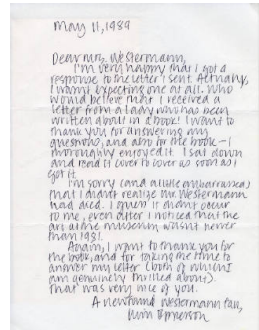 May 11, 1989
Dear Mrs. Westermann,
I'm very happy that I got a
response to the letter I sent. Actually,
I wasn't expecting one at all. Who
would believe that I received a
letter from a lady who has been
written about in a book! I want to
thank you for answering my
questions, and also for the book - I
thoroughly enjoyed it. I sat down
and read it cover to cover as soon as I
got it.
I'm sorry (and a little embarrassed)
that I didn't realize Mr. Westermann
had died. I guess it didn't occur
to me, even after I noticed that the
art at the museum wasn't newer
than 1981.
Again, I want to thank you for
the book, and for taking time to
answer my letter (both of which I
am genuinely thrilled about).
That was very nice of you.
A newfound Westermann fan,